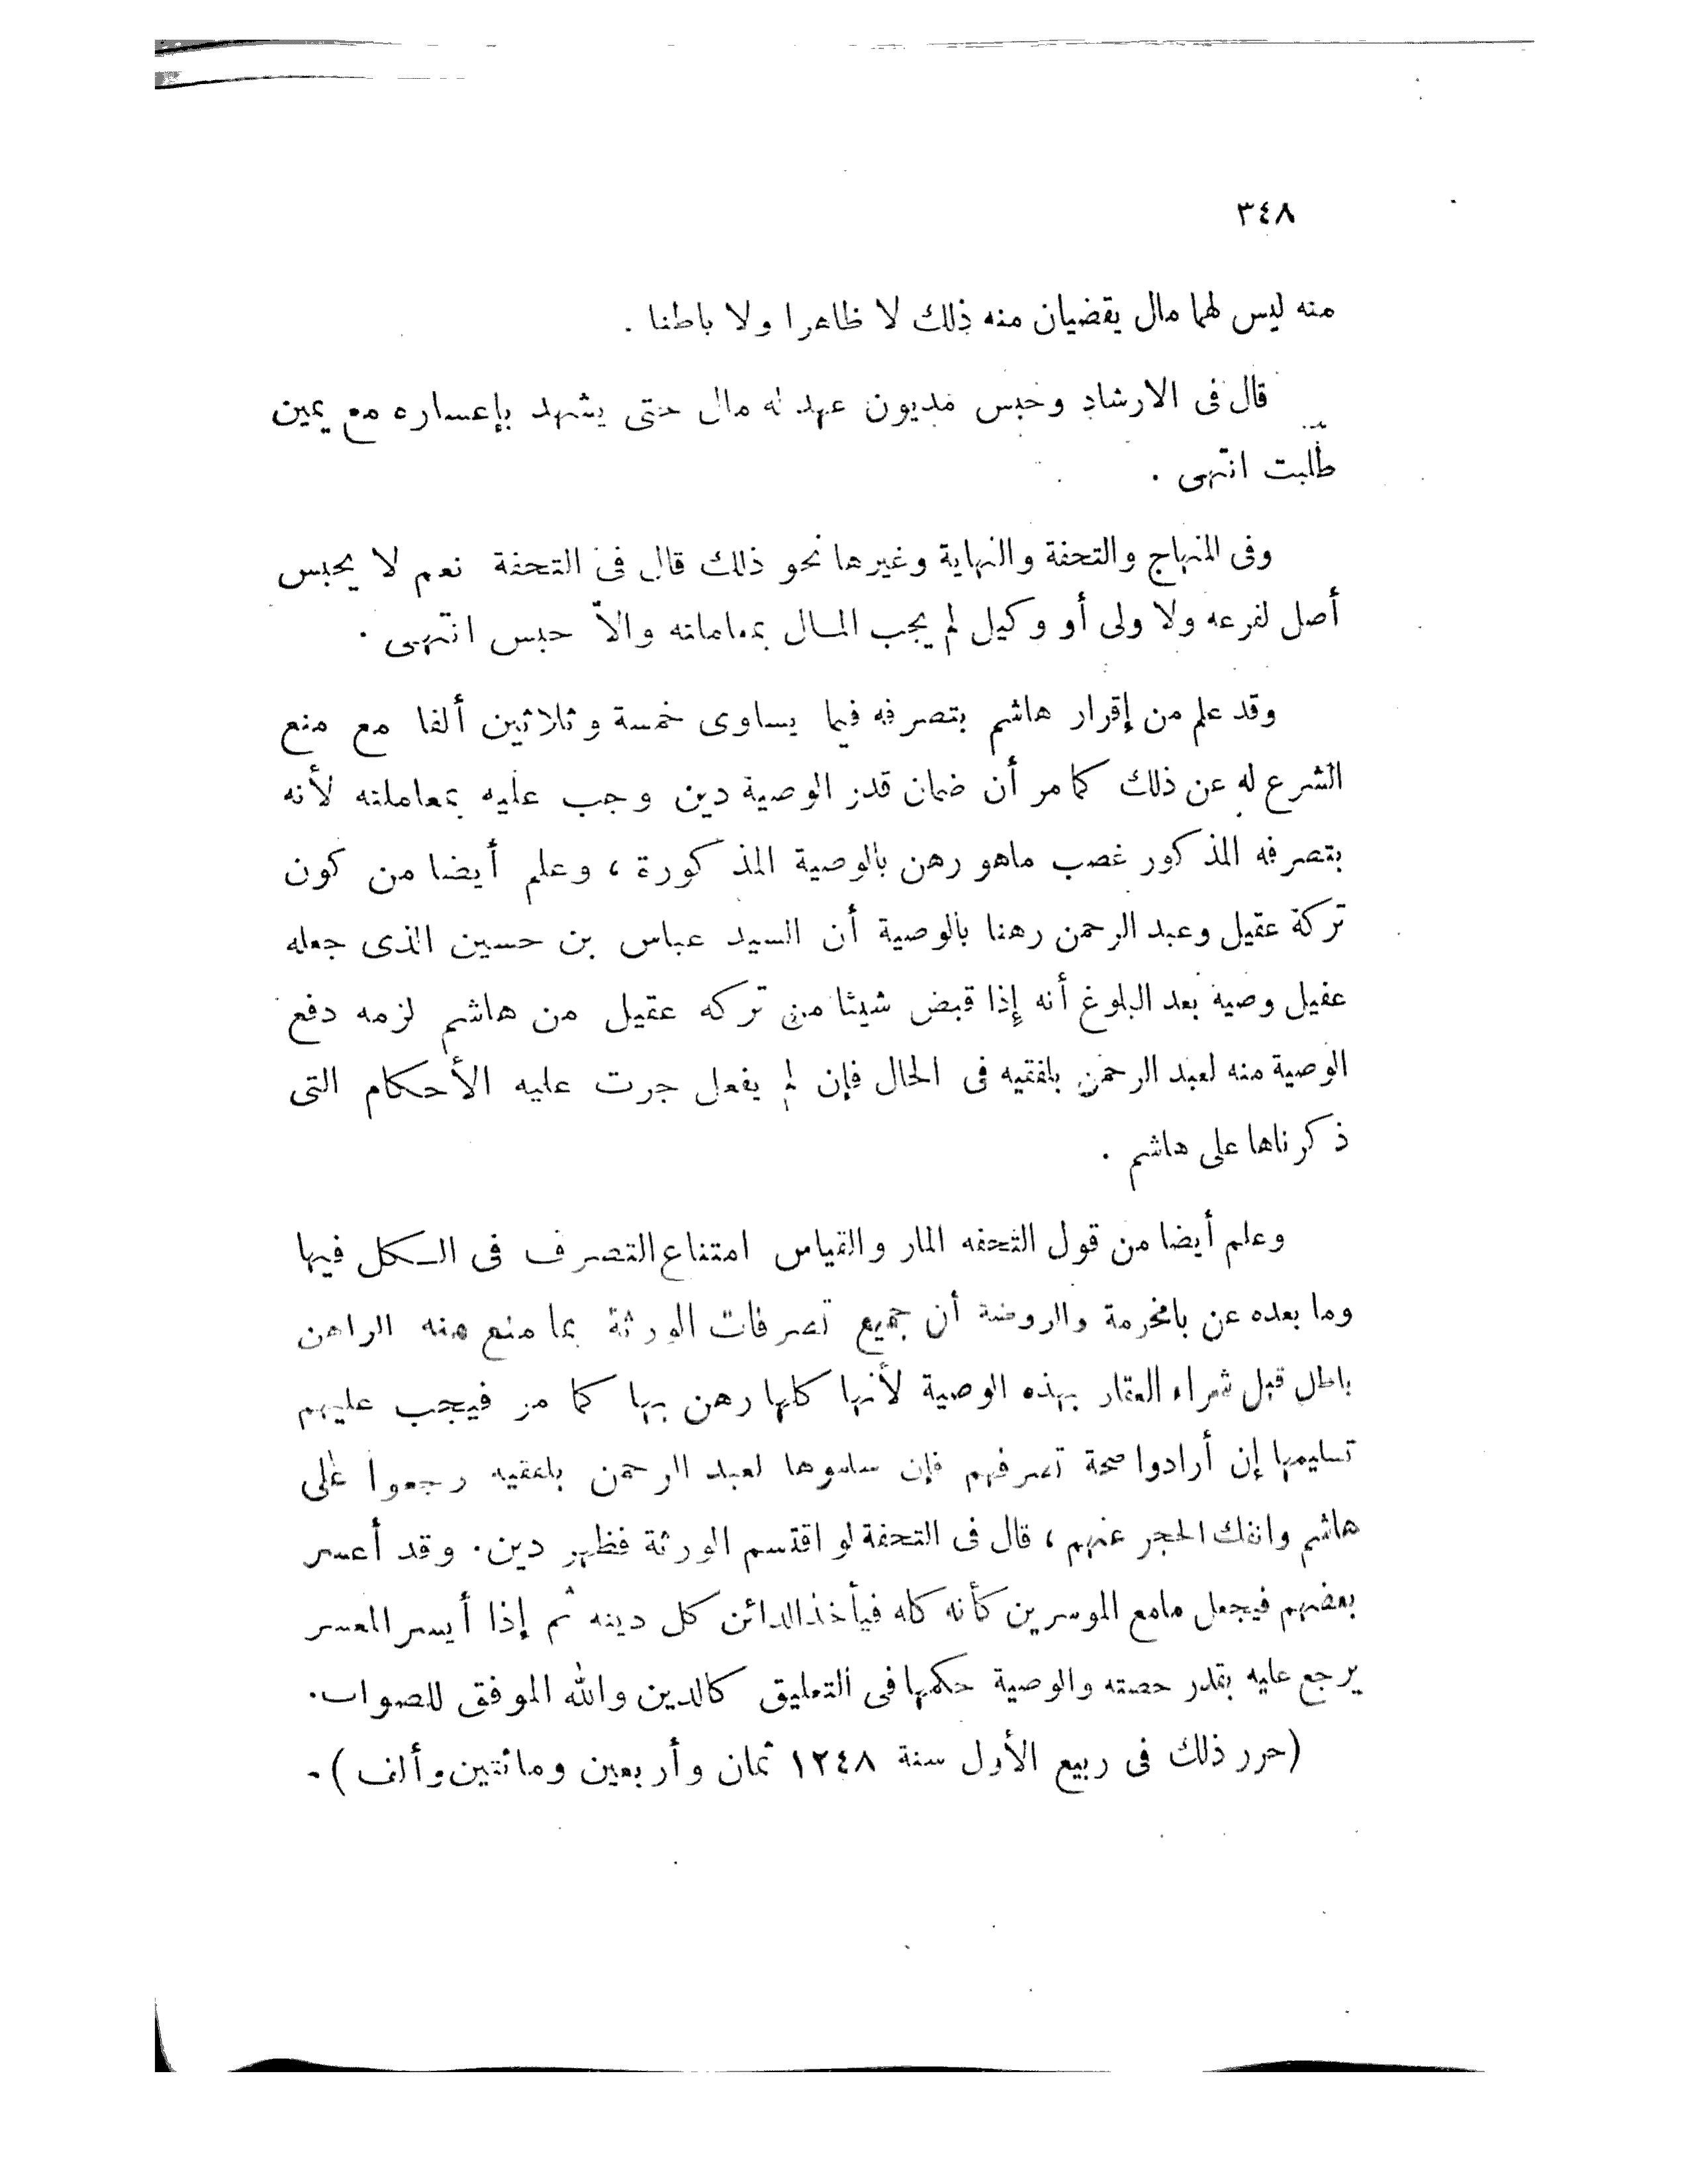 ٣٤٨
منه ليس لهما مال يقضيان منه ذلك لا ظاهرا ولا باطنا .
قال فى الارشاد وحبس مديون عهد له مال حتى يشهد بإعساره مع يمين
طلبت انتهى .
وفى المنهاج والتحفة والنهاية وغيرها نحو ذلك قال فى التحفة نعم لا يحبس
أصل لفرعه ولا ولى أو وكيل لم يجب المال بمعاملته والاّ حبس انتهى .
وقد علم من إقرار هاشم بتصرفه فيما يساوى خمسة وثلاثين ألفا مع منع
الشرع له عن ذلك كما مر أن ضمان قدر الوصية دين وجب عليه بمعاملته لأنه
بتصرفه المذكور غصب ماهو رهن بالوصية المذكورة ، وعلم أيضا من كون
تركة عقيل وعبد الرحمن رهنا بالوصية أن السيد عباس بن حسين الذى جعله
عقيل وصية بعد البلوغ أنه إذا قبض شيئا من تركه عقيل من هاشم لزمه دفع
الوصية منه لعبد الرحمن بلفقيه فى الحال فإن لم يفعل جرت عليه الأحكام التى
ذكرناها على هاشم .
وعلم أيضا من قول التحفه المار والقياس امتناع التصرف فى الكل فيها
وما بعده عن بامخرمة والروضة أن جميع تصرفات الورثة بما منع منه الراهن
باطل قبل شراء العقار بهذه الوصية لأنها كلها رهن بها كما مر فيجب عليهم
تسليمها إن أرادوا صحة تصرفهم فإن سلموها لعبد الرحمن بلفقيه رجعوا على
هاشم وانفك الحجر عنهم ، قال فى التحفة لو اقتسم الورثة فظهر دين . وقد أعسر
بعضهم فيجعل مامع الموسرين كأنه كله فيأخذ الدائن كل دينه ثم إذا أيسر المعسر
يرجع عليه بقدر حصته والوصية حكمها فى التعليق كالدين والله الموفق للصواب .
(حرر ذلك فى ربيع الأول سنة ١٢٤٨ ثمان وأربعين ومائتين وألف) .